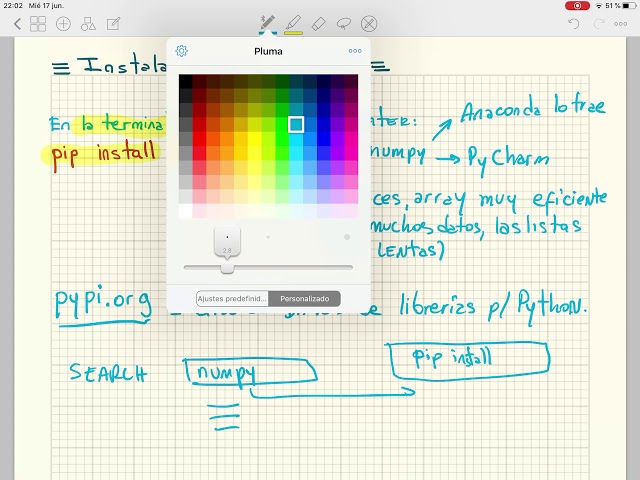 22:02 Mié 17 jun. 51 %
Pluma
2,8
Ajustes predefinid... Personalizado
≡ Instala ≡
En la termina ATER: Anaconda lo trae
pip install numpy → PyCharm
ces, array muy eficiente
muchos datos, las listas
LENTAS)
pypi.org de librerías p/ Python.
SEARCH numpy pip install